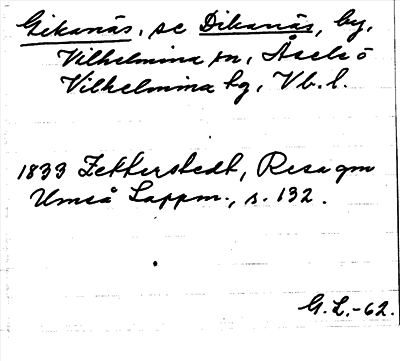 Gikanäs, se Dikanäs, by,
Vilhelmina sn, Åsele ö
Vilhelmina tg, Vb. l.
1833 Zetterstedt, Resa gm
Umeå Lappm., s. 132.
G. L.-62.